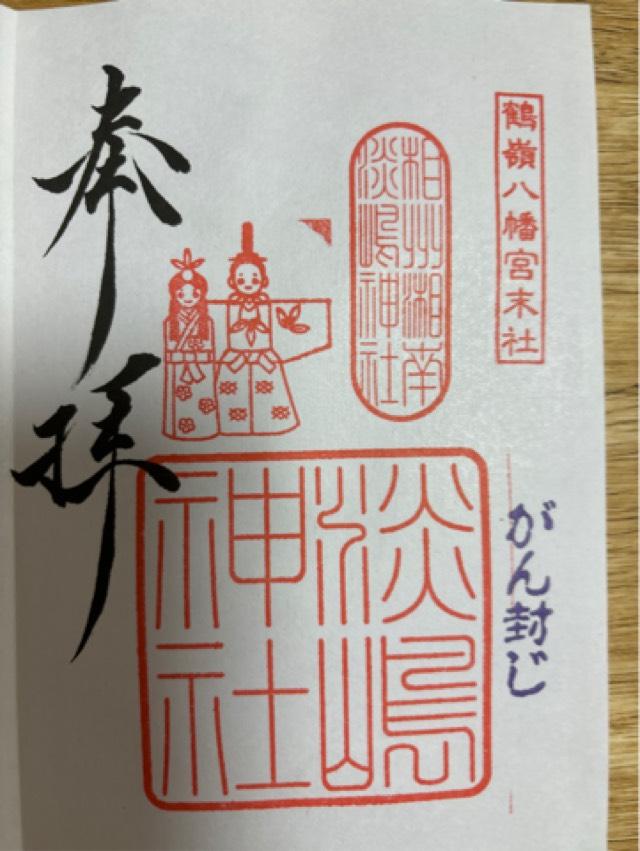 鶴嶺八幡宮末社
がん封じ
相州湘南
淡嶋神社
淡嶋
神社
奉拝